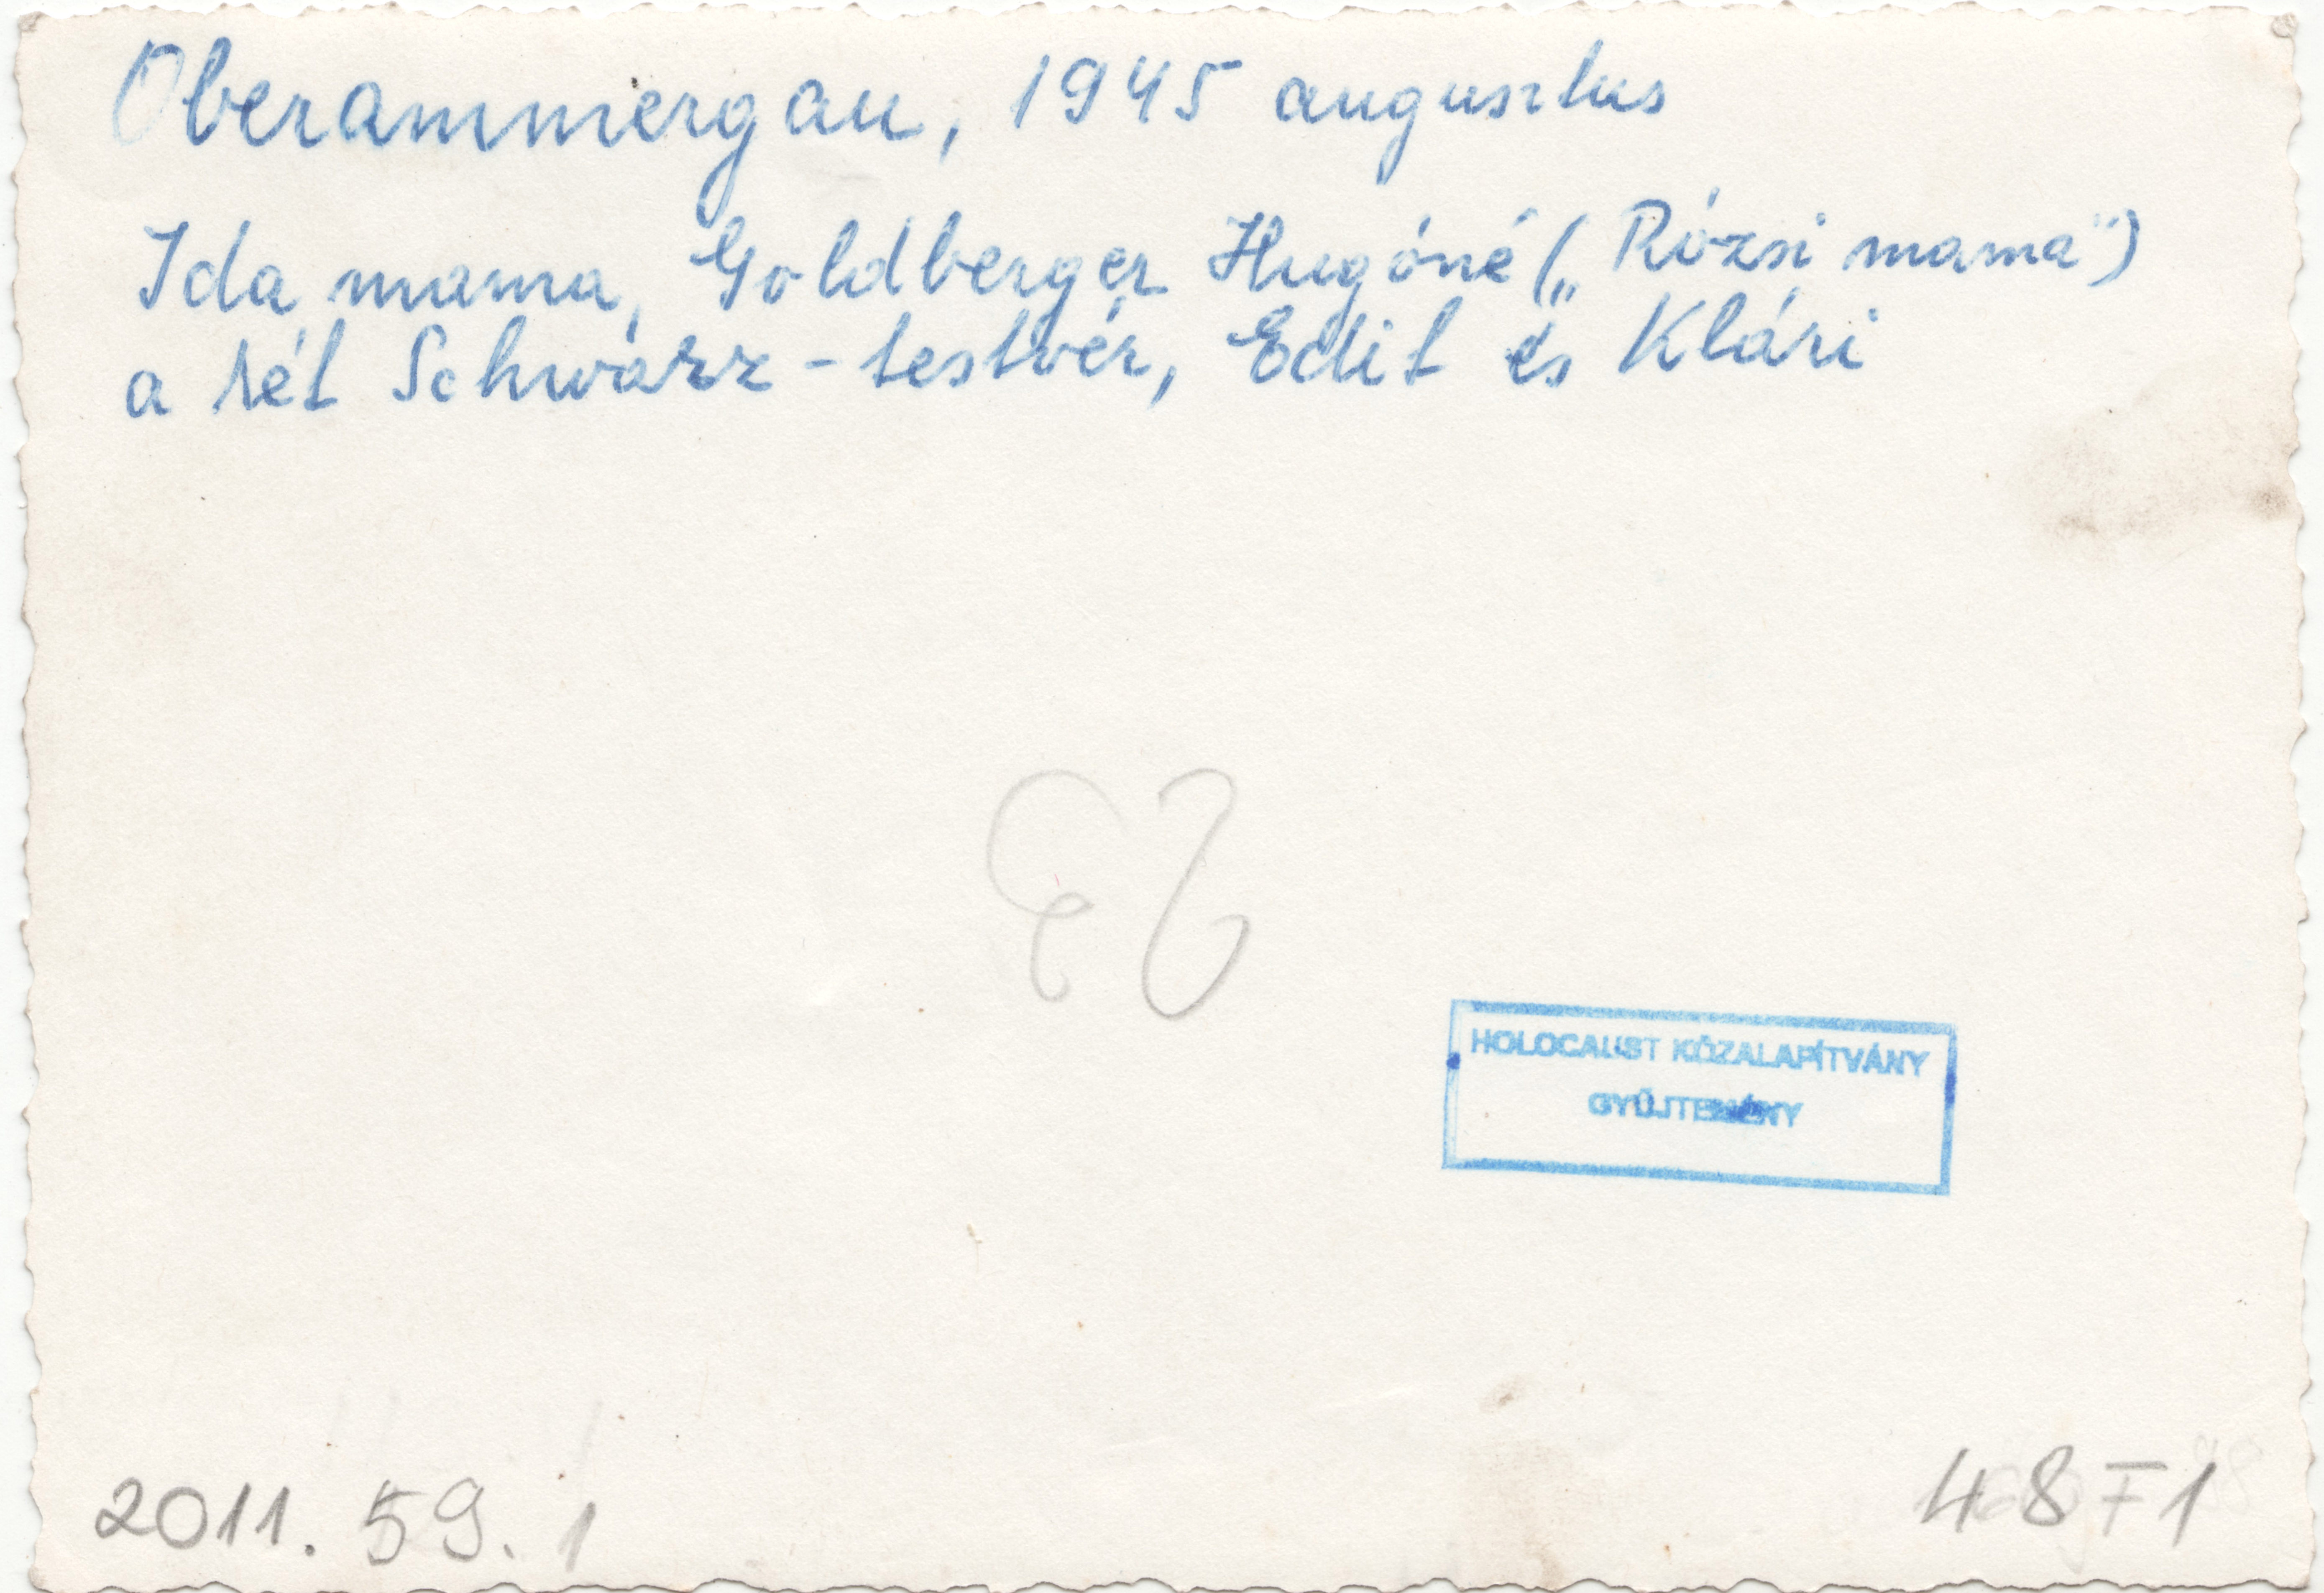 Oberammergau, 1945 augusztus
Ida mama, Goldberger Hugóné („Rózsi mama")
a két Schwárz-testvér, Edit és Klári
HOLOCAUST KÖZALAPÍTVÁNY
GYŰJTEMÉNY
2011. 59. 1
48 F1